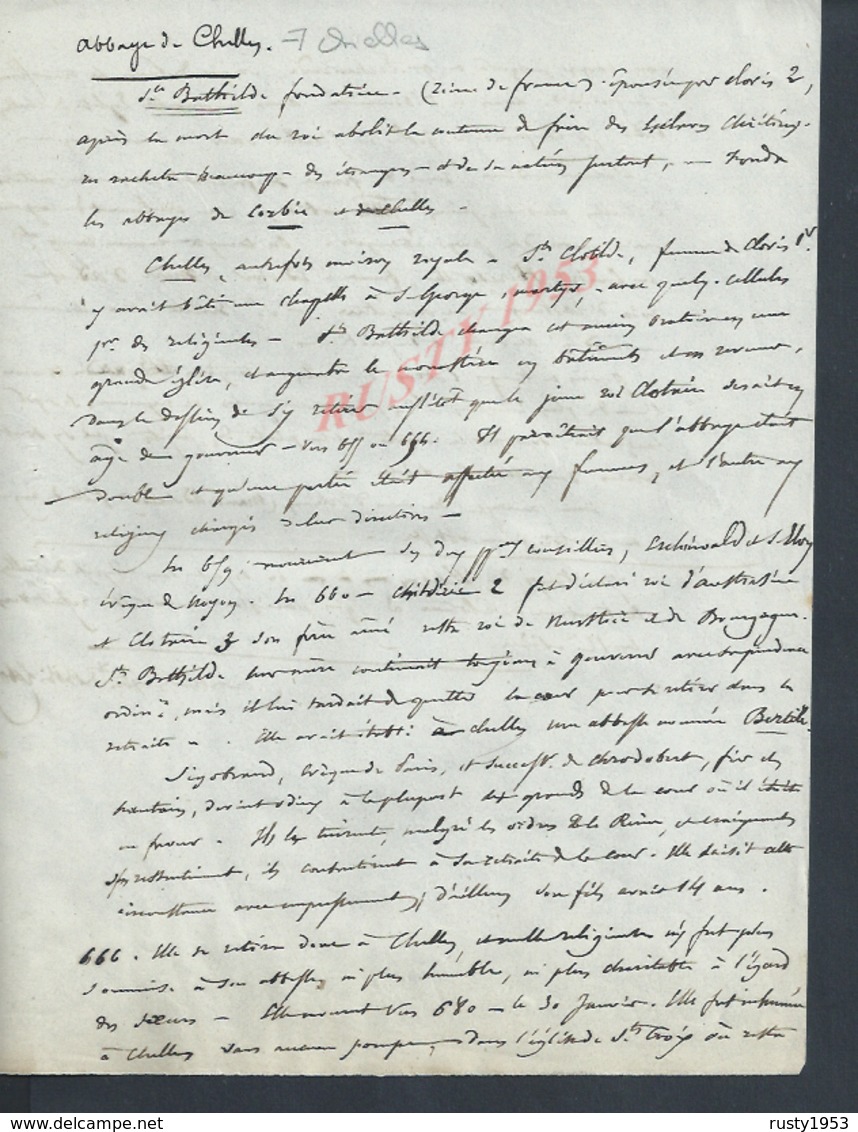 abbaye de Chelles. Chelles
Ste Bathilde fondatrice (reine de france) épousée par clovis 2,
après la mort du roi abolit la coutume de faire des Esclaves Chrétiens.
en racheta beaucoup des étrangers et de sa nation surtout, fonda
les abbayes de Corbie et de Chelles
Chelles, autrefois maison royale Ste Clotilde, femme de clovis 1er
y avait bâti une chapelle à S. George, martyr, avec quelq. cellules
pr. des religieuses Ste Bathilde changea cet ancien oratoire en une
grande église, et augmenta le monastère en bâtiments et en revenus,
dans le dessein de s'y retirer aussitôt que le jeune roi Clotaire serait en
âge de gouverner vers 655 ou 656. Il paraîtrait que l'abbaye était
double et qu'une partie était affectée aux femmes, et l'autre aux
religieux chargés de leur direction
En 659 moururent ses deux conseillers, Erchinoald et S. Eloy
évêque de Noyon. En 660 Childéric 2 fut déclaré roi d'austrasie
et Clotaire 3 son frère aîné resta roi de Neustrie et de Bourgogne.
Ste Bathilde leur mère continuait toujours à gouverner avec sa prudence
ordin.re, mais il lui tardait de quitter la cour pour se retirer dans la
retraite. Elle avait établi à chelles une abbesse nommée Bertile.
Sigobrand, évêque de Paris, et success. de chrodobert, fier et
hautain, devint odieux à la plupart des grands de la cour où il était
en faveur. Ils le tuèrent, malgré les ordres de la Reine, et craignant
son ressentiment, ils consentirent à sa retraite de la cour. Elle saisit cette
circonstance avec empressement; d'ailleurs son fils avait 14 ans.
666. Elle se retira donc à Chelles, et nulle religieuse n'y fut plus
soumise à son abbesse, ni plus humble, ni plus charitable à l'égard
des sœurs Elle mourut vers 680 le 30 Janvier. Elle fut inhumée
à Chelles sans aucune pompe, dans l'église de Ste Croix où resta
RUSTY 1953
rusty1953